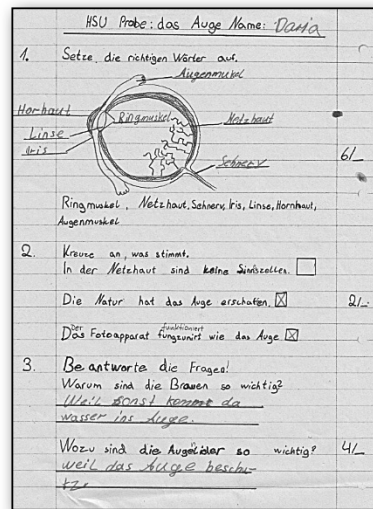 HSU Probe: das Auge Name: Daria
1. Setze die richtigen Wörter auf.
Augenmukel
Horhaut
Ringmuskel
Netzhaut
Linse
Iris
Sehnerv
6/_
Ringmuskel, Netzhaut, Sehnerv, Iris, Linse, Hornhaut,
Augenmuskel
2. Kreuze an, was stimmt.
In der Netzhaut sind keine Sinnszellen.
Die Natur hat das Auge erschafen.
2/_
Der funktioniert
Das Fotoapparat fungzunirt wie das Auge
3. Beantworte die Fragen!
Warum sind die Brauen so wichtig?
Weil sonst kommt da
wasser ins Auge.
Wozu sind die Augelider so wichtig? 4/_
weil das Auge beschu-
tze